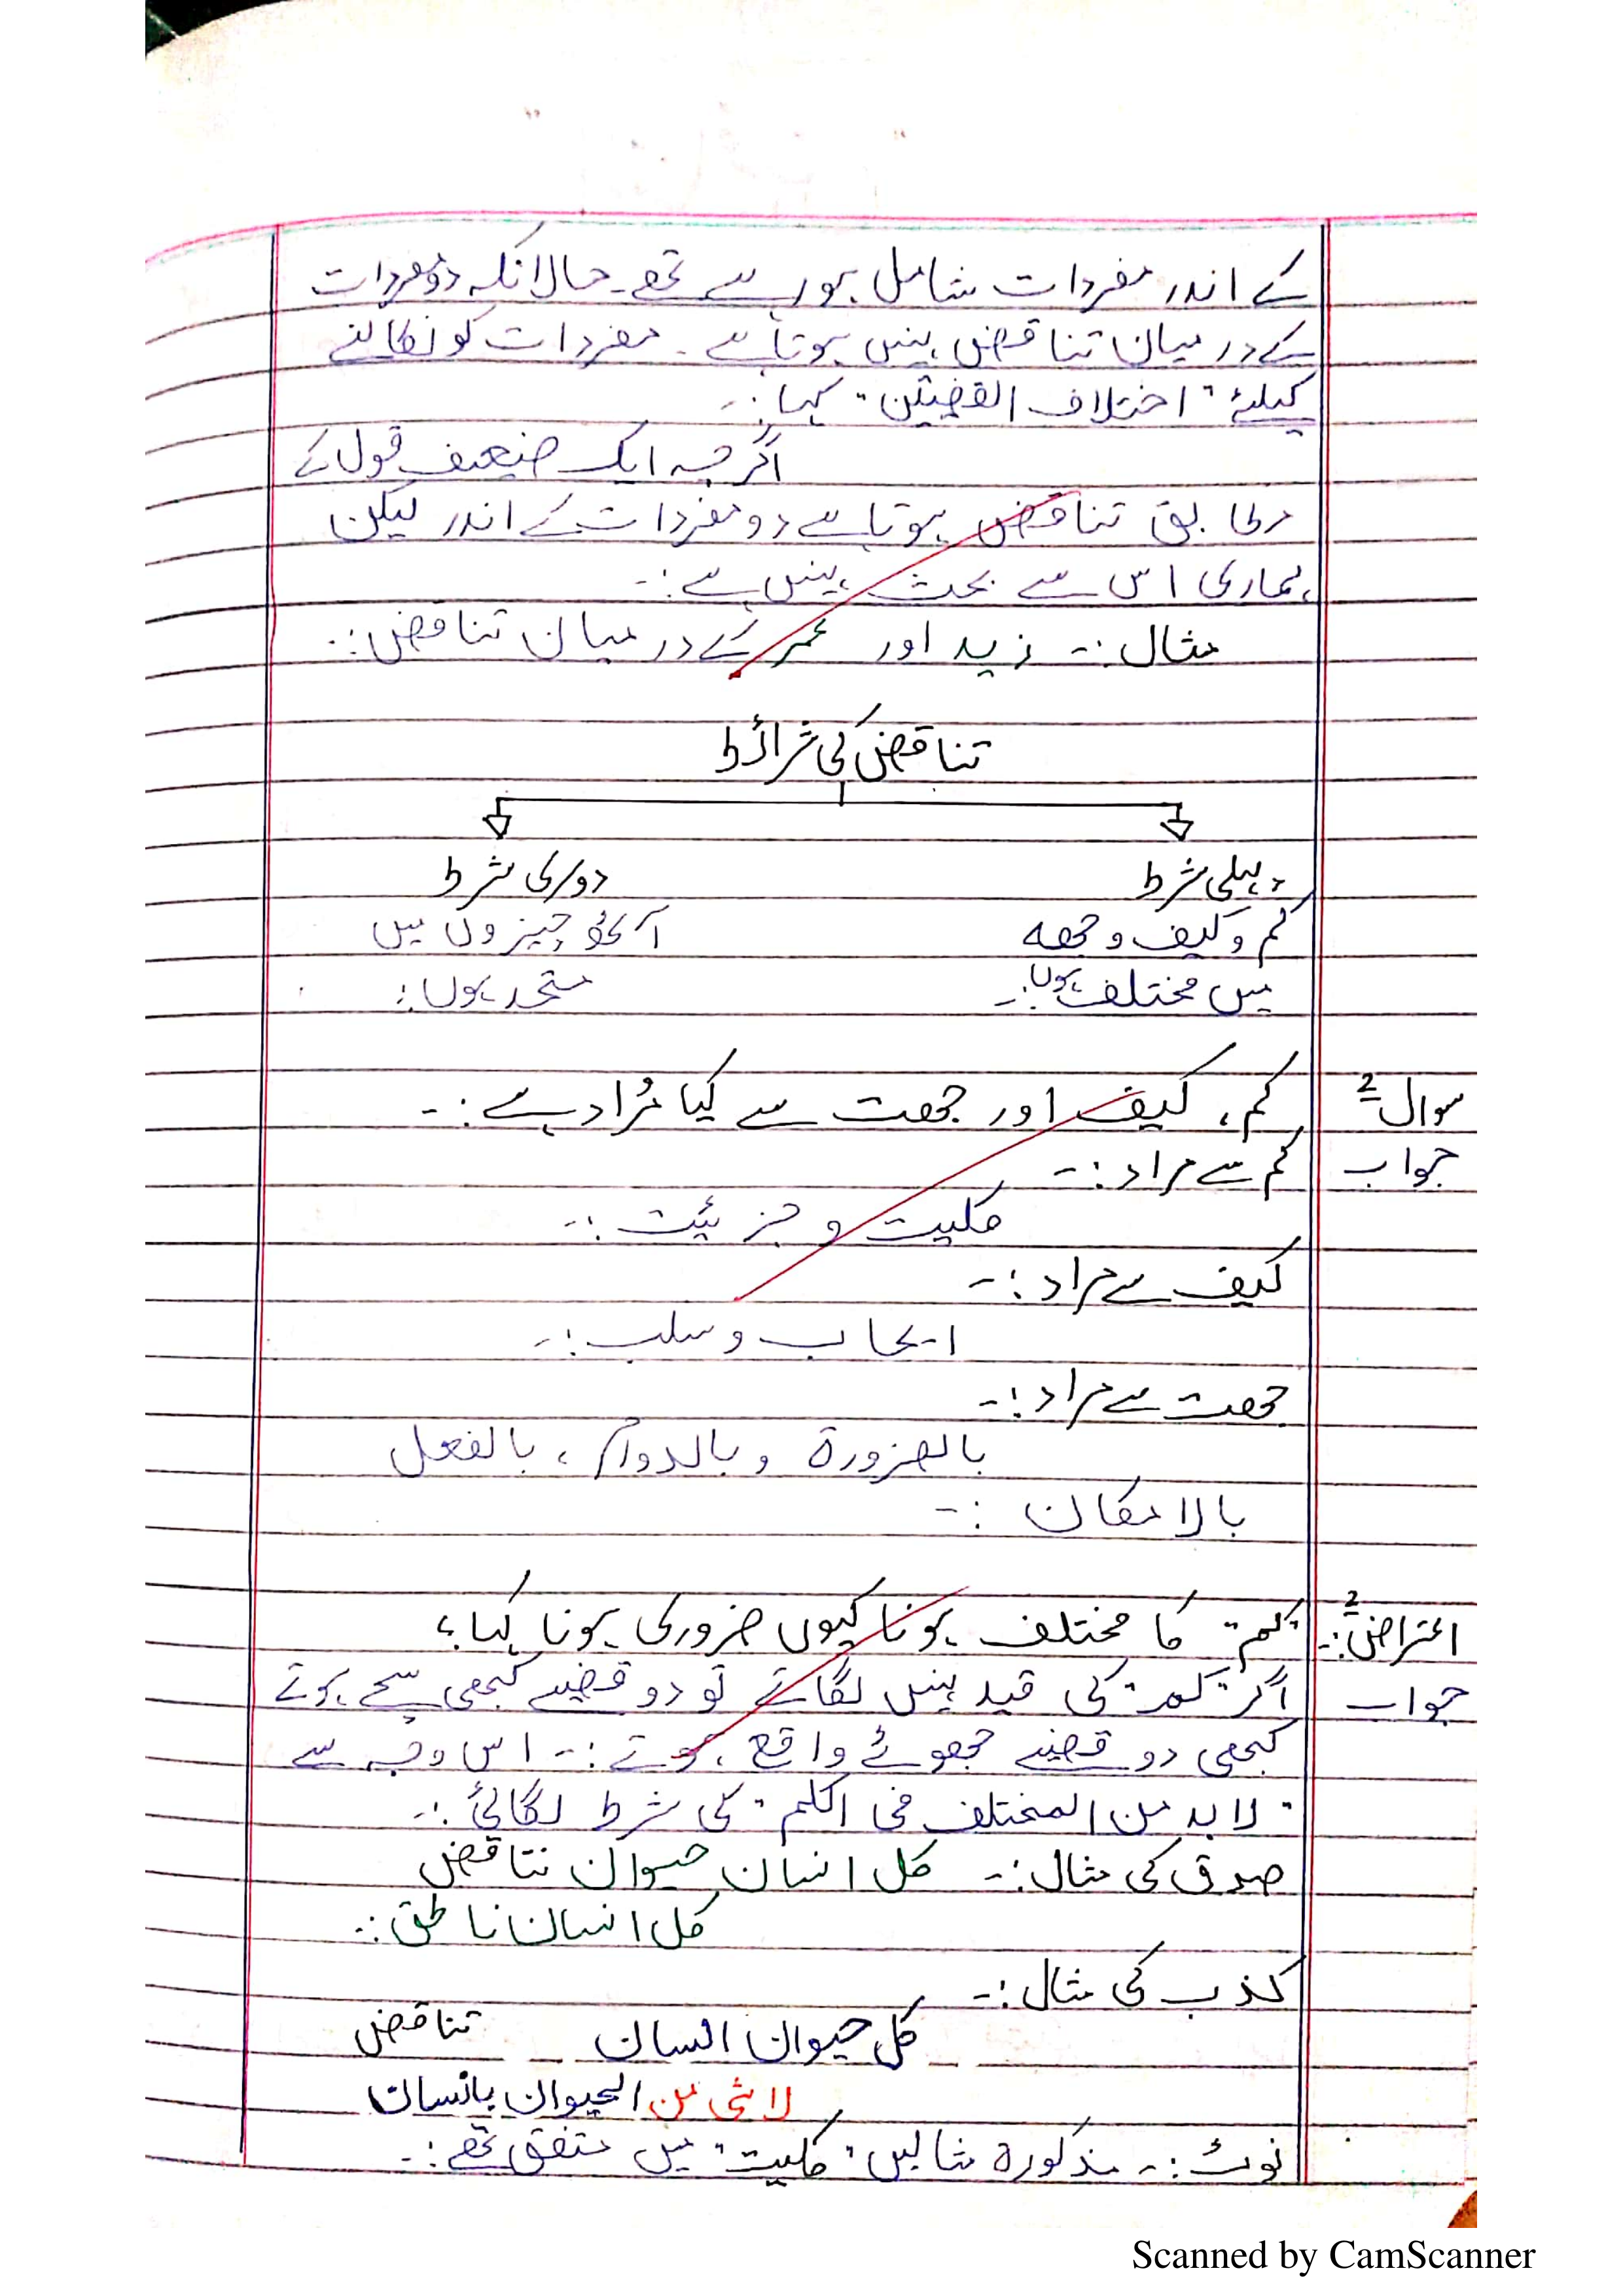 کے اندر مفردات شامل ہورہے تھے۔ حالانکہ دو مفردات
کے درمیان تناقض نہیں ہوتا ہے۔ مفردات کو نکالنے
کیلئے "اختلاف القضیتین" کہا:۔
اگرچہ ایک ضیعیف قول کے
مطابق تناقض ہوتا ہے دو مفردات کے اندر لیکن
ہماری اس سے بحث نہیں ہے:۔
مثال:۔ زید اور عمر کے درمیان تناقض:۔
تناقض کی شرائط
پہلی شرط
کم و کیف و جھہ
میں مختلف ہوں:۔
دوسری شرط
آٹھ چیزوں میں
متحد ہوں:
سوال 2 کم، کیف اور جھت سے کیا مُراد ہے:۔
جواب کم سے مراد:۔
کلیت و جزئیت:۔
کیف سے مراد:۔
ایجاب و سلب:۔
جھت سے مراد:۔
بالضرورۃ و بالدوام، بالفعل
بالامکان:۔
اعتراض 2:۔ "کم" کا مختلف ہونا کیوں ضروری ہونا کہا؟
جواب اگر "کم" کی قید نہیں لگاتے تو دو قضیے کبھی سچے ہوتے
کبھی دو قضیے جھوٹے واقع ہوتے:۔ اس وجہ سے
"لابد من المختلف فی الکم" کی شرط لگائی:۔
صدق کی مثال:۔ کل انسان حیوان تناقض
کل انسان ناطق:۔
کذب کی مثال:۔
کل حیوان انسان تناقض
لاشی من الحیوان بانسان
نوٹ:۔ مذکورہ مثالیں "کلیت" میں متفق تھے:۔
Scanned by CamScanner